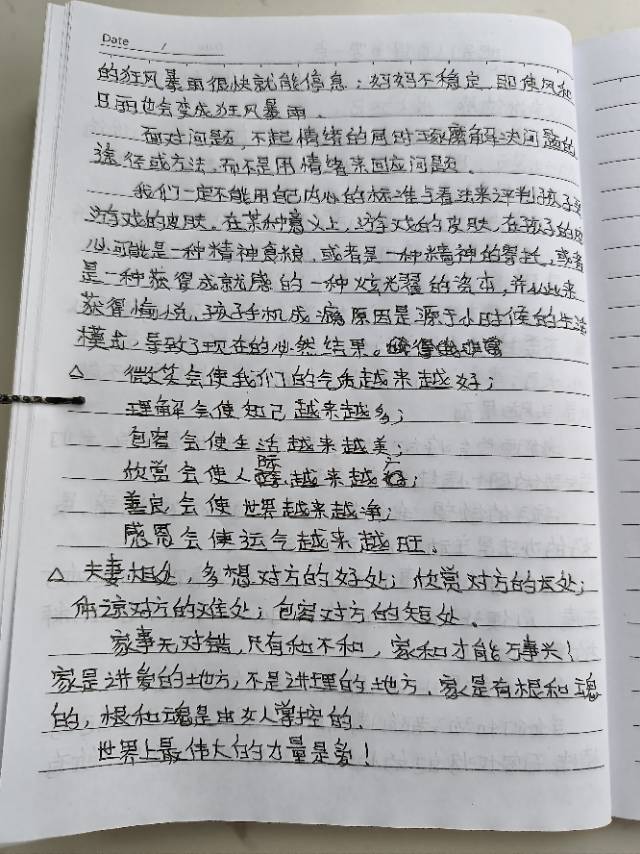 Date /
的狂风暴雨很快就能停息；妈妈不稳定，即使风和
日丽也会变成狂风暴雨。
面对问题，不起情绪的同时琢磨解决问题的
途径或方法，而不是用情绪来回应问题。
我们一定不能用自己内心的标准与看法来评判孩子买
游戏的皮肤，在某种意义上，游戏的皮肤，在孩子的内
心可能是一种精神食粮，或者是一种精神的寄托，或者
是一种获得成就感的一种炫光耀的资本，并从此来
获得愉悦，孩子手机成瘾原因是源于小时候的生活
模式，导致了现在的必然结果。
△ 微笑会使我们的气质越来越好；
理解会使知己越来越多；
包容会使生活越来越美；
欣赏会使人际越来越广；
善良会使世界越来越净；
感恩会使运气越来越旺。
△ 夫妻相处，多想对方的好处；欣赏对方的长处；
体谅对方的难处；包容对方的短处。
家事无对错，只有和不和，家和才能万事兴！
家是讲爱的地方，不是讲理的地方，家是有根和魂
的，根和魂是由女人掌控的。
世界上最伟大的力量是爱！